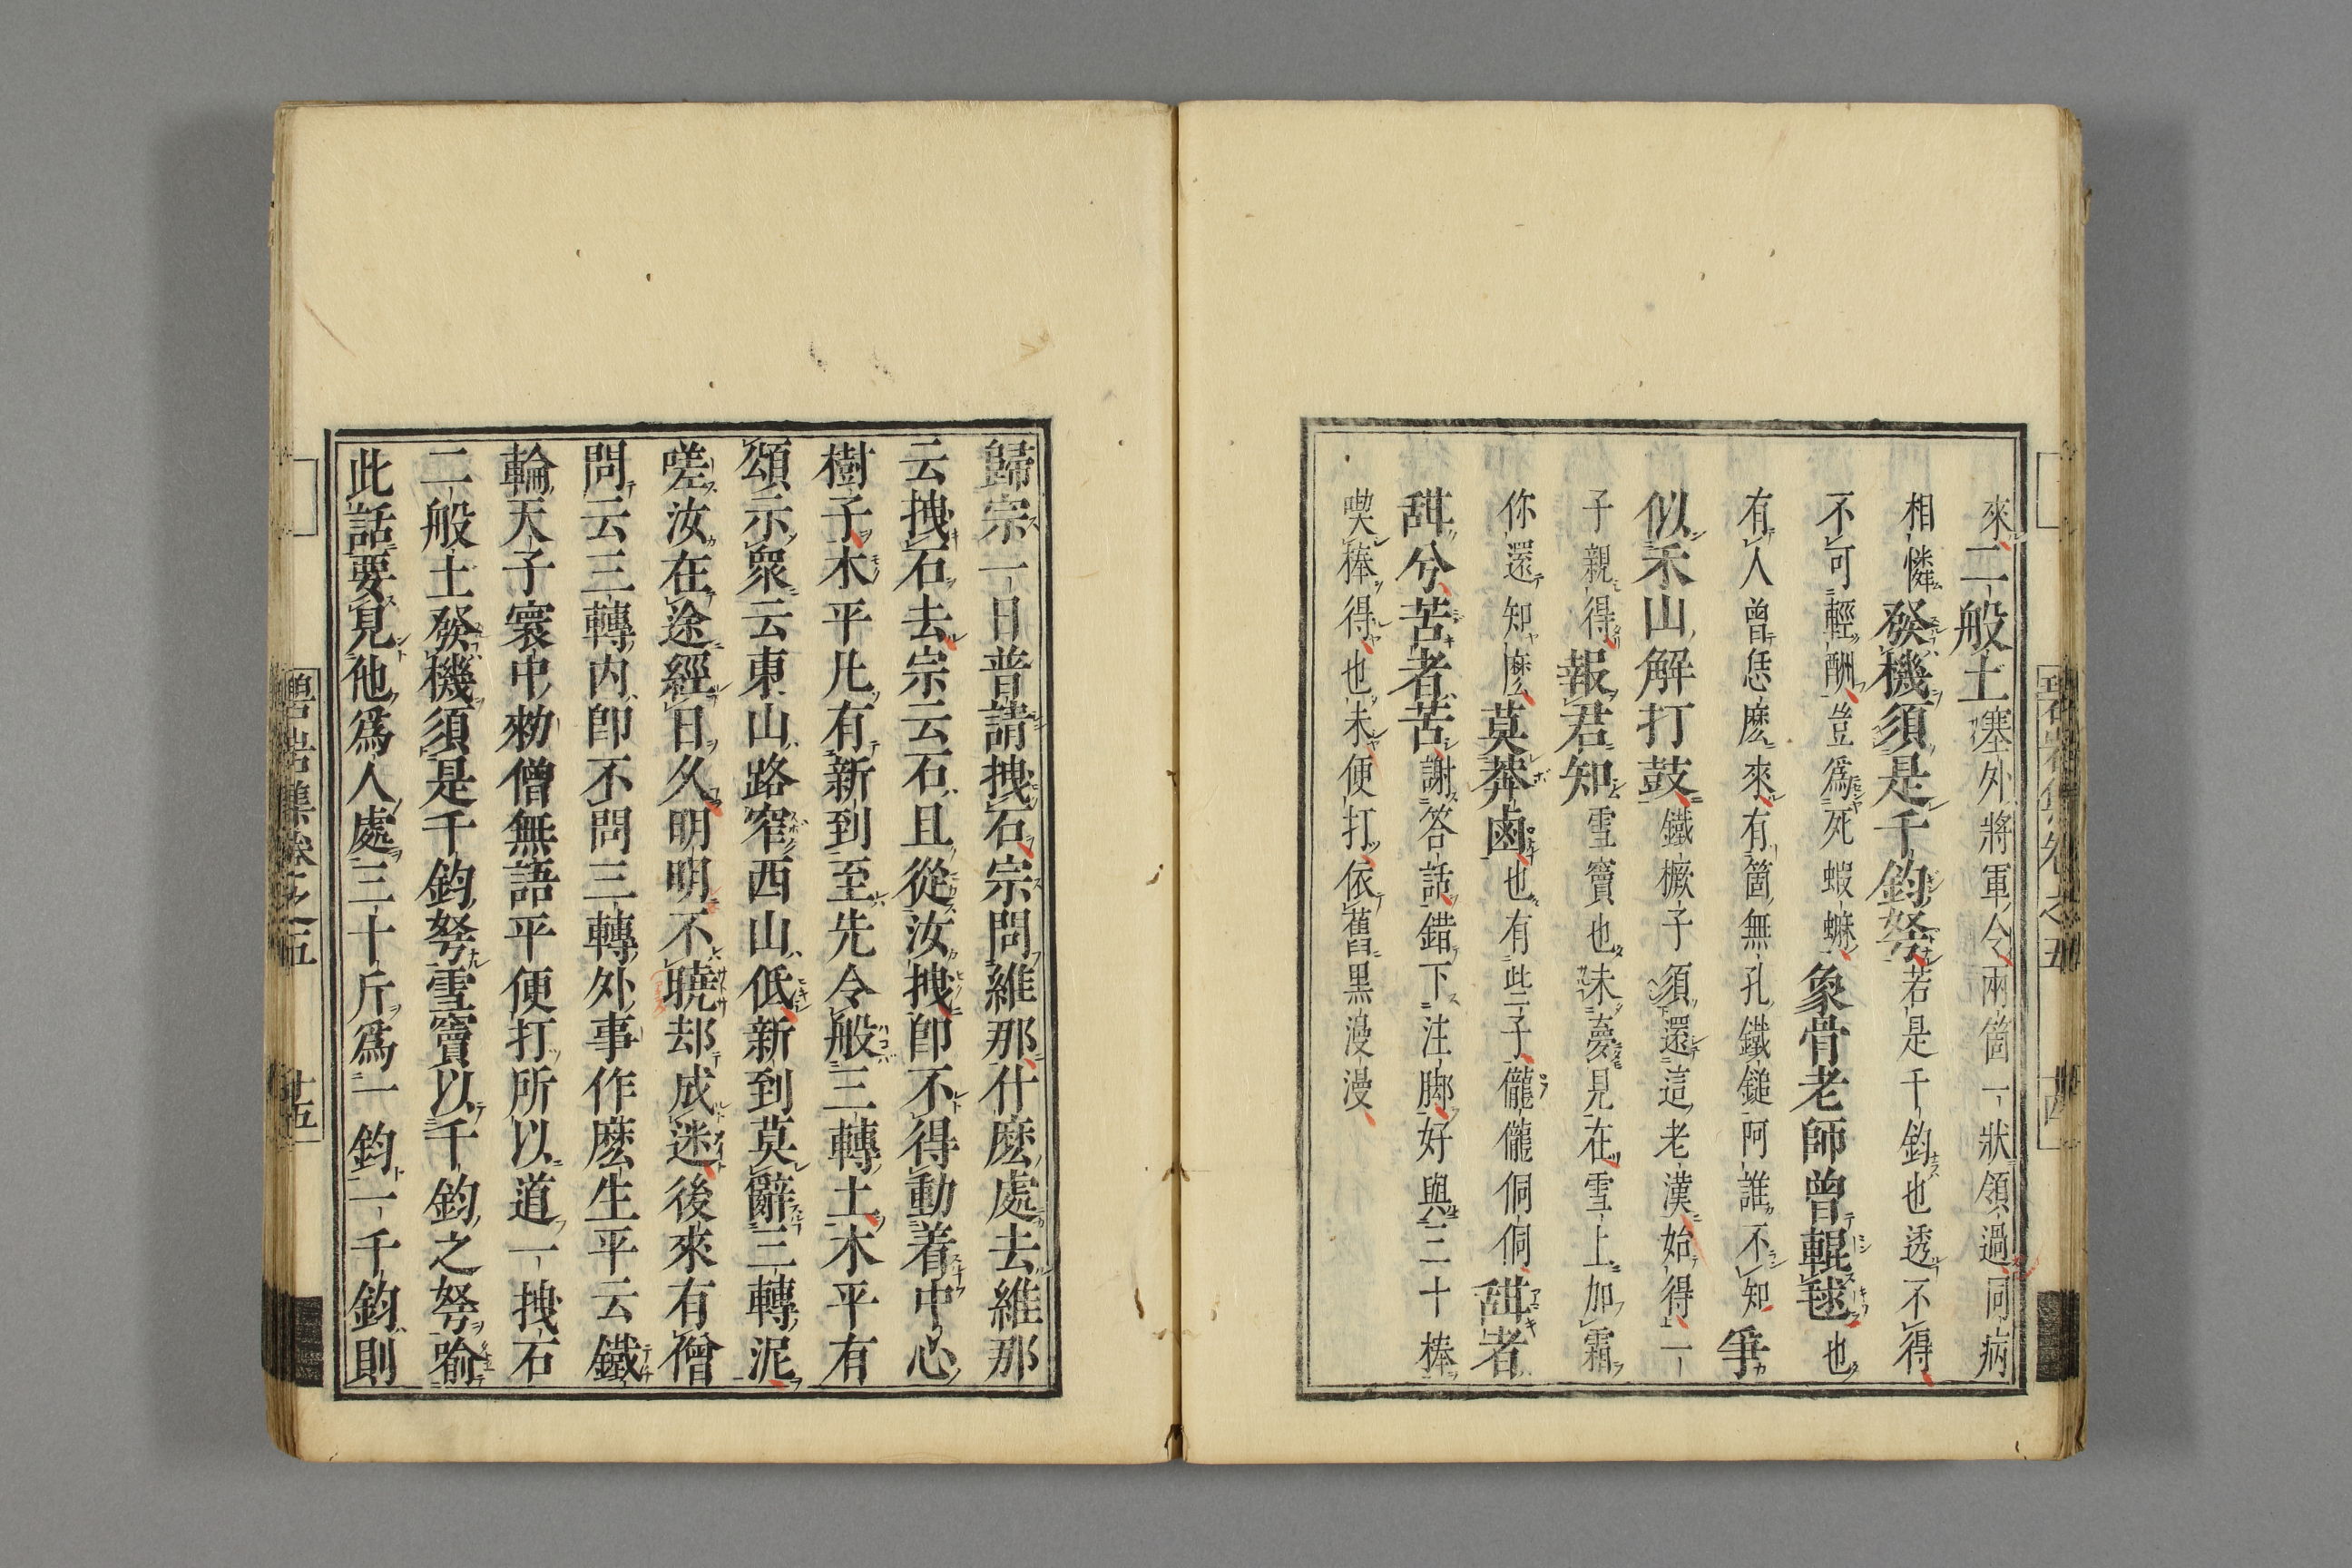 來二般土塞外將軍令兩箇一狀領過同病
相憐發機須是千鈞弩若是千鈞也透不得
不可輕酬豈爲死蝦蟆象骨老師曾輥毬也
有人曾恁麽來有箇無孔鐵鎚阿誰不知爭
似禾山解打鼓鐵橛子須還這老漢始得一
子親得報君知雪竇也未夢見在雪上加霜
你還知麽莫莽鹵也有此二子儱儱侗侗甜者
甜兮苦者苦謝答話錯下注脚好與三十棒
喫棒得也未便打依舊黑漫漫
歸宗一日普請拽石宗問維那什麽處去維那
云拽石去宗云石且從汝拽卽不得動着中心
樹子木平凡有新到至先令般三轉土木平有
頌示衆云東山路窄西山低新到莫辭三轉泥
嗟汝在途經日久明明不曉却成迷後來有僧
問云三轉內卽不問三轉外事作麽生平云鐵
輪天子寰中勑僧無語平便打所以道一拽石
二般土發機須是千鈞弩雪竇以千鈞之弩喻
此話要見他爲人處三十斤爲一鈞一千鈞則
碧岩集卷之五
十五